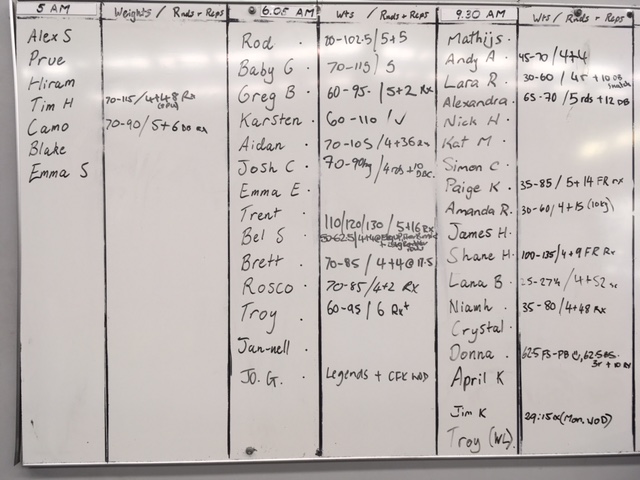 5 AM Weights / Rnds + Reps
Alex S
Prue
Hiram
Tim H 70-115/4+48 Rx
Camo 70-90/5+6 Rx
Blake
Emma S
6.05 AM Wts / Rnds + Reps
Rod 70-102.5/5+5
Baby G 70-115/5
Greg B 60-95/5+2 Rx
Karsten 60-110/✓
Aidan 70-105/4+36 Rx
Josh C 70-90kg/4rds+10
Emma E
Trent 110/120/130/5+16 Rx
Bel S 50-62.5/4+4@
Brett 70-85/4+4@17.5
Rosco 70-85/4+2 Rx
Troy 60-95/6 Rx+
Jan-nell
JO. G. Legends + CFK WOD
9.30 AM Wts / Rnds + Reps
Mathijs
Andy A 45-70/4+4
Lara R 30-60/45+10 DB snatch
Alexandra 65-70/5rds+12 DB
Nick H
Kat M
Simon C
Paige K 35-85/5+14 FR rx
Amanda R. 30-60/4+15 (10kg)
James H
Shane H 100-135/4+9 FR Rx
Lana B 25-27½/4+52
Niamh 35-80/4+48 Rx
Crystal
Donna 62.5 FS-PB, 62.5 BS
April K
Jim K 29:15 (Mon. WOD)
Troy (WL)